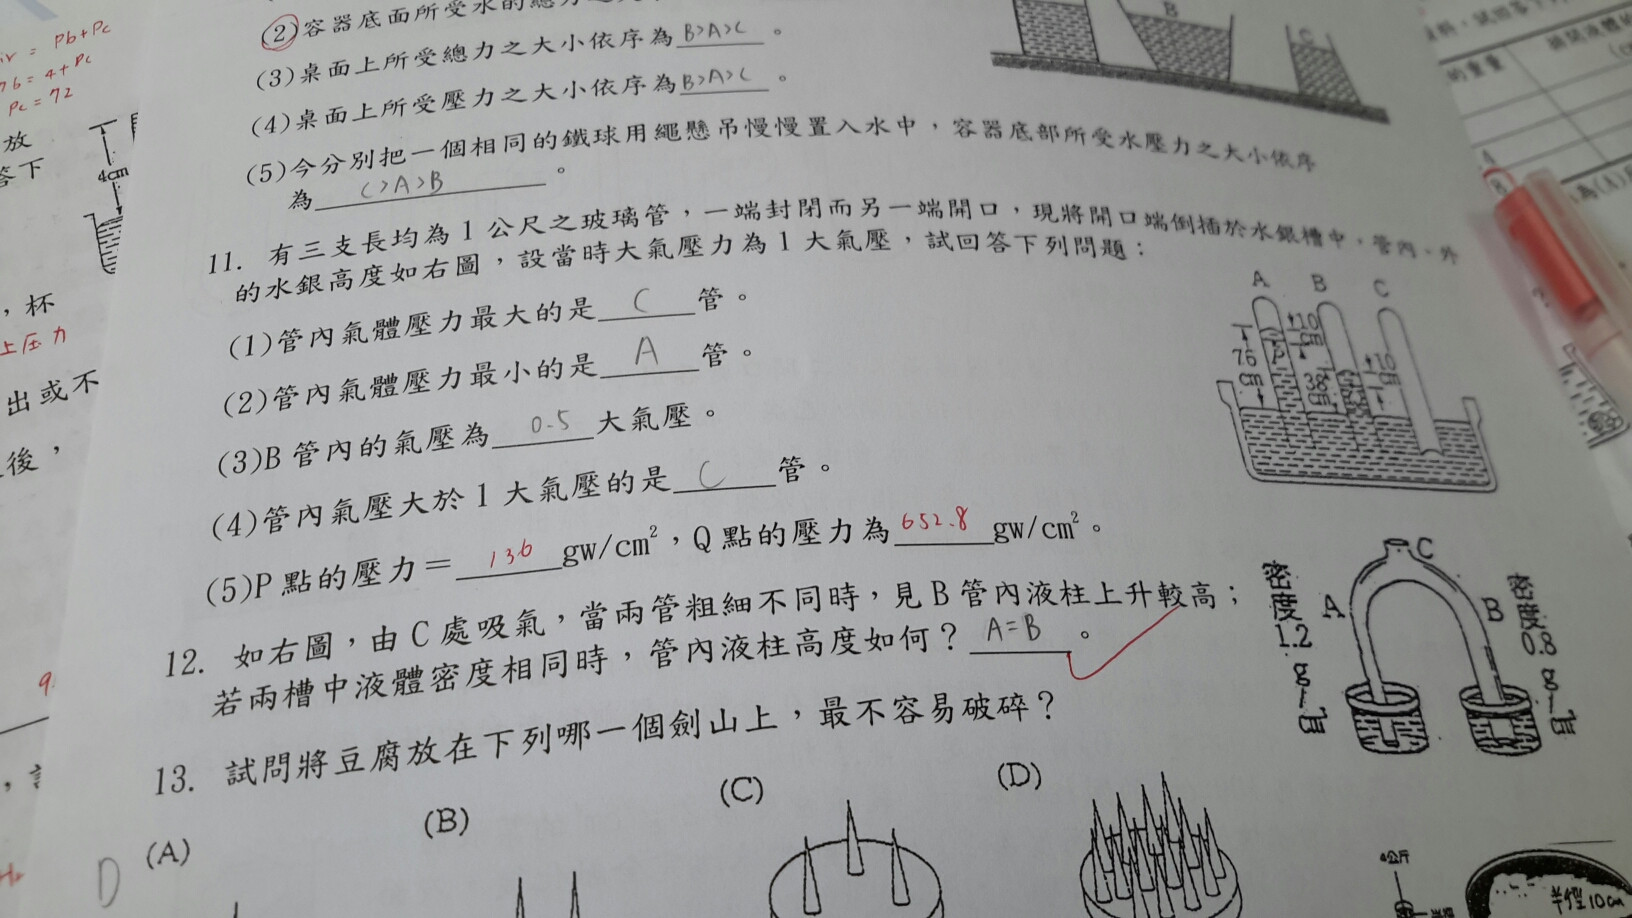 = Pb+Pc
76 = 4+Pc
Pc = 72
放
答下
4cm
,杯
上压力
出或不
後,
9.
(2)容器底面所受水的總力之大
(3)桌面上所受總力之大小依序為 B>A>C 。
(4)桌面上所受壓力之大小依序為 B>A>C 。
(5)今分別把一個相同的鐵球用繩懸吊慢慢置入水中,容器底部所受水壓力之大小依序
為 C>A>B 。
B
C
11. 有三支長均為1公尺之玻璃管,一端封閉而另一端開口,現將開口端倒插於水銀槽中,管內、外
的水銀高度如右圖,設當時大氣壓力為1大氣壓,試回答下列問題:
(1)管內氣體壓力最大的是 C 管。
(2)管內氣體壓力最小的是 A 管。
(3)B管內的氣壓為 0.5 大氣壓。
(4)管內氣壓大於1大氣壓的是 C 管。
(5)P點的壓力= 136 gw/cm²,Q點的壓力為 652.8 gw/cm²。
A B C
76 cm
10 cm
P
38 cm
10 cm
12. 如右圖,由C處吸氣,當兩管粗細不同時,見B管內液柱上升較高;
若兩槽中液體密度相同時,管內液柱高度如何? A=B 。
密度1.2 g/cm³
A
C
B
密度0.8 g/cm³
13. 試問將豆腐放在下列哪一個劍山上,最不容易破碎?
D (A) (B) (C) (D)
4公斤
半徑10cm
的重量